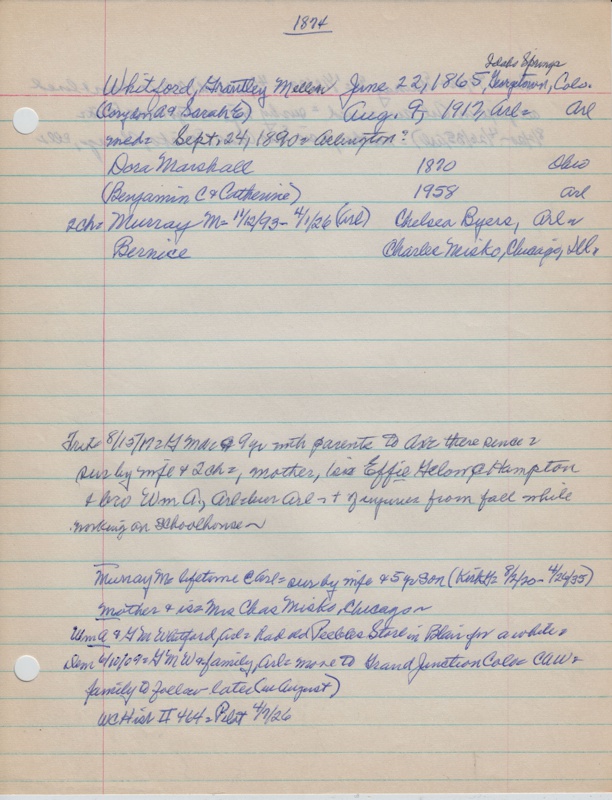 1874
Idaho Springs
Whitford, Grantley Mellen June 22, 1865, Georgetown, Colo.
(Conyon A & Sarah E) Aug. 9, 1912, Arl= Arl
med= Sept. 24, 1890= Arlington?
Dora Marshall 1870 Ohio
(Benjamin C & Catherine) 1958 Arl
2ch= Murray M= 11/12/93- 4/1/26 (Arl) Chelsea Byers, Arl=
Bernice Charles Misko, Chicago, Ill.
8/15/12= G M 9 yr with parents to Ark there since=
sur by wife & 2ch=, mother, 1sis Effie Hampton
& bro Wm A., Arl= bur Arl= injuries from fall while
working on schoolhouse~
Murray M= lifetime Arl= sur by wife & 5 yr son (Kirk H= 8/2/20- 4/24/35)
mother & sis= Mrs Chas Misko, Chicago~
Wm A & G M Whitford, had old Peebles Store in Blair for a while=
Dem 6/10/09= G M W & family, Arl= move to Grand Junction Colo= CAW=
family to follow later (in August)
WC Hist II 464= Pilot 4/9/26